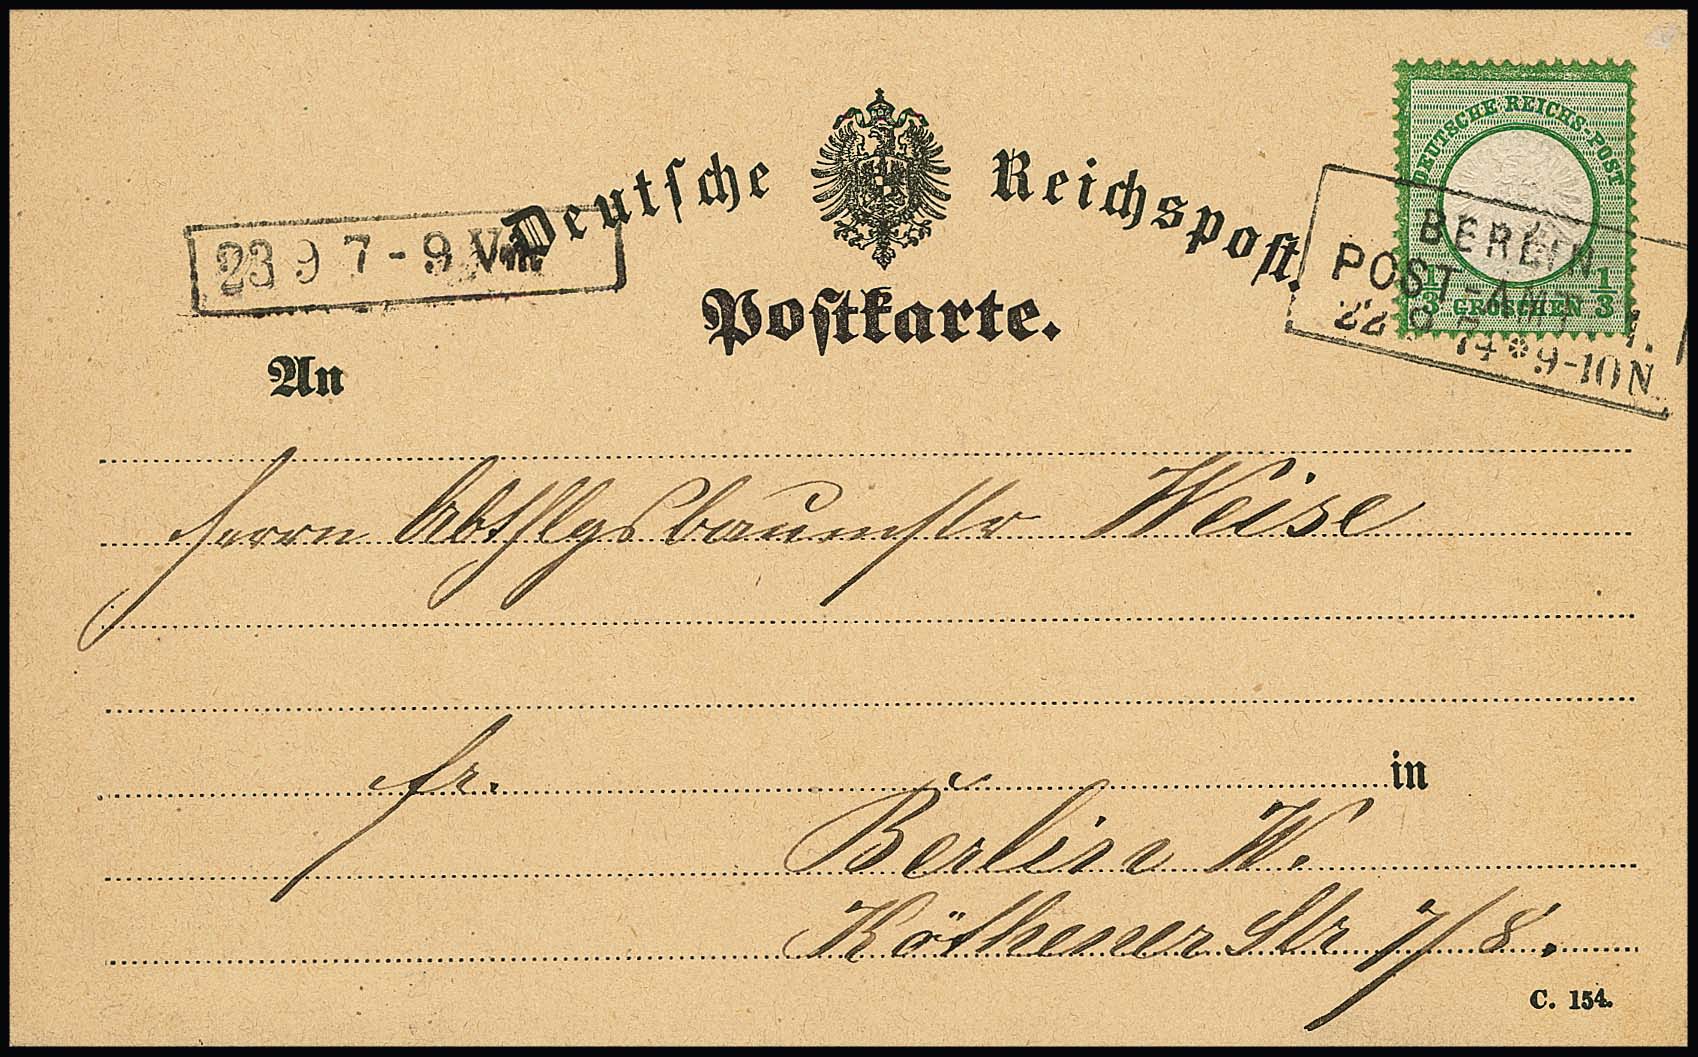 Deutsche Reichspost.
DEUTSCHE REICHS-POST
1/3 GROSCHEN 1/3
BERLIN
POST-AMT
22 9 74 * 9-10 N.
23 9 7-9 Vm
Postkarte.
An
Herrn Abthlgsbaumstr Weise
fr.
in
Berlin W.
Köthener Str 7/8.
C. 154.